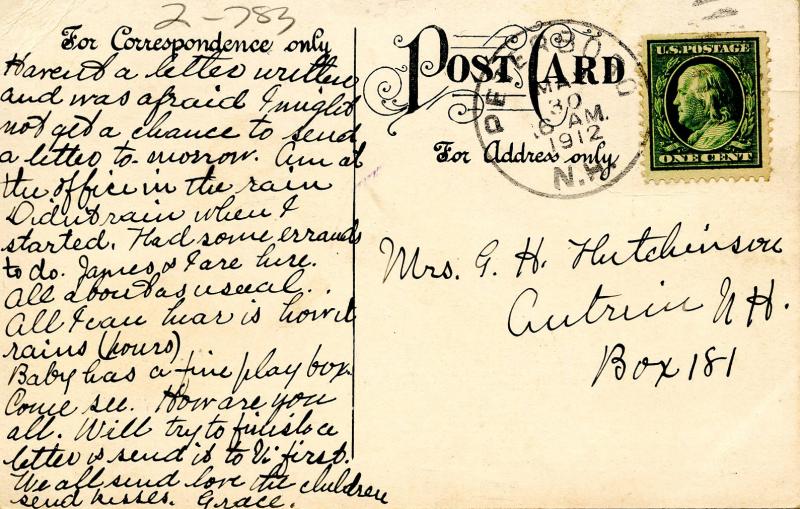 2-783
For Correspondence only
POST CARD
For Address only
PETERBORO
MAR
30
6 AM.
1912
N.H.
U.S. POSTAGE
ONE CENT
Haven't a letter written
and was afraid I might
not get a chance to send
a letter to-morrow. Am at
the office in the rain
Didn't rain when I
started. Had some errands
to do. James & I are here.
All about as usual.
All I can hear is how it
rains (pours)
Baby has a fine play box.
Come see. How are you
all. Will try to finish a
letter & send it to Vi first.
We all send love the children
send kisses. Grace.
Mrs. G. H. Hutchinson
Antrim N.H.
Box 181